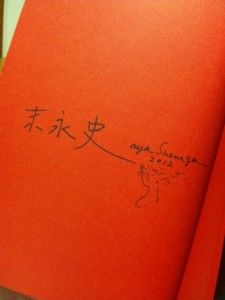 末永史
aya Suenaga
2012